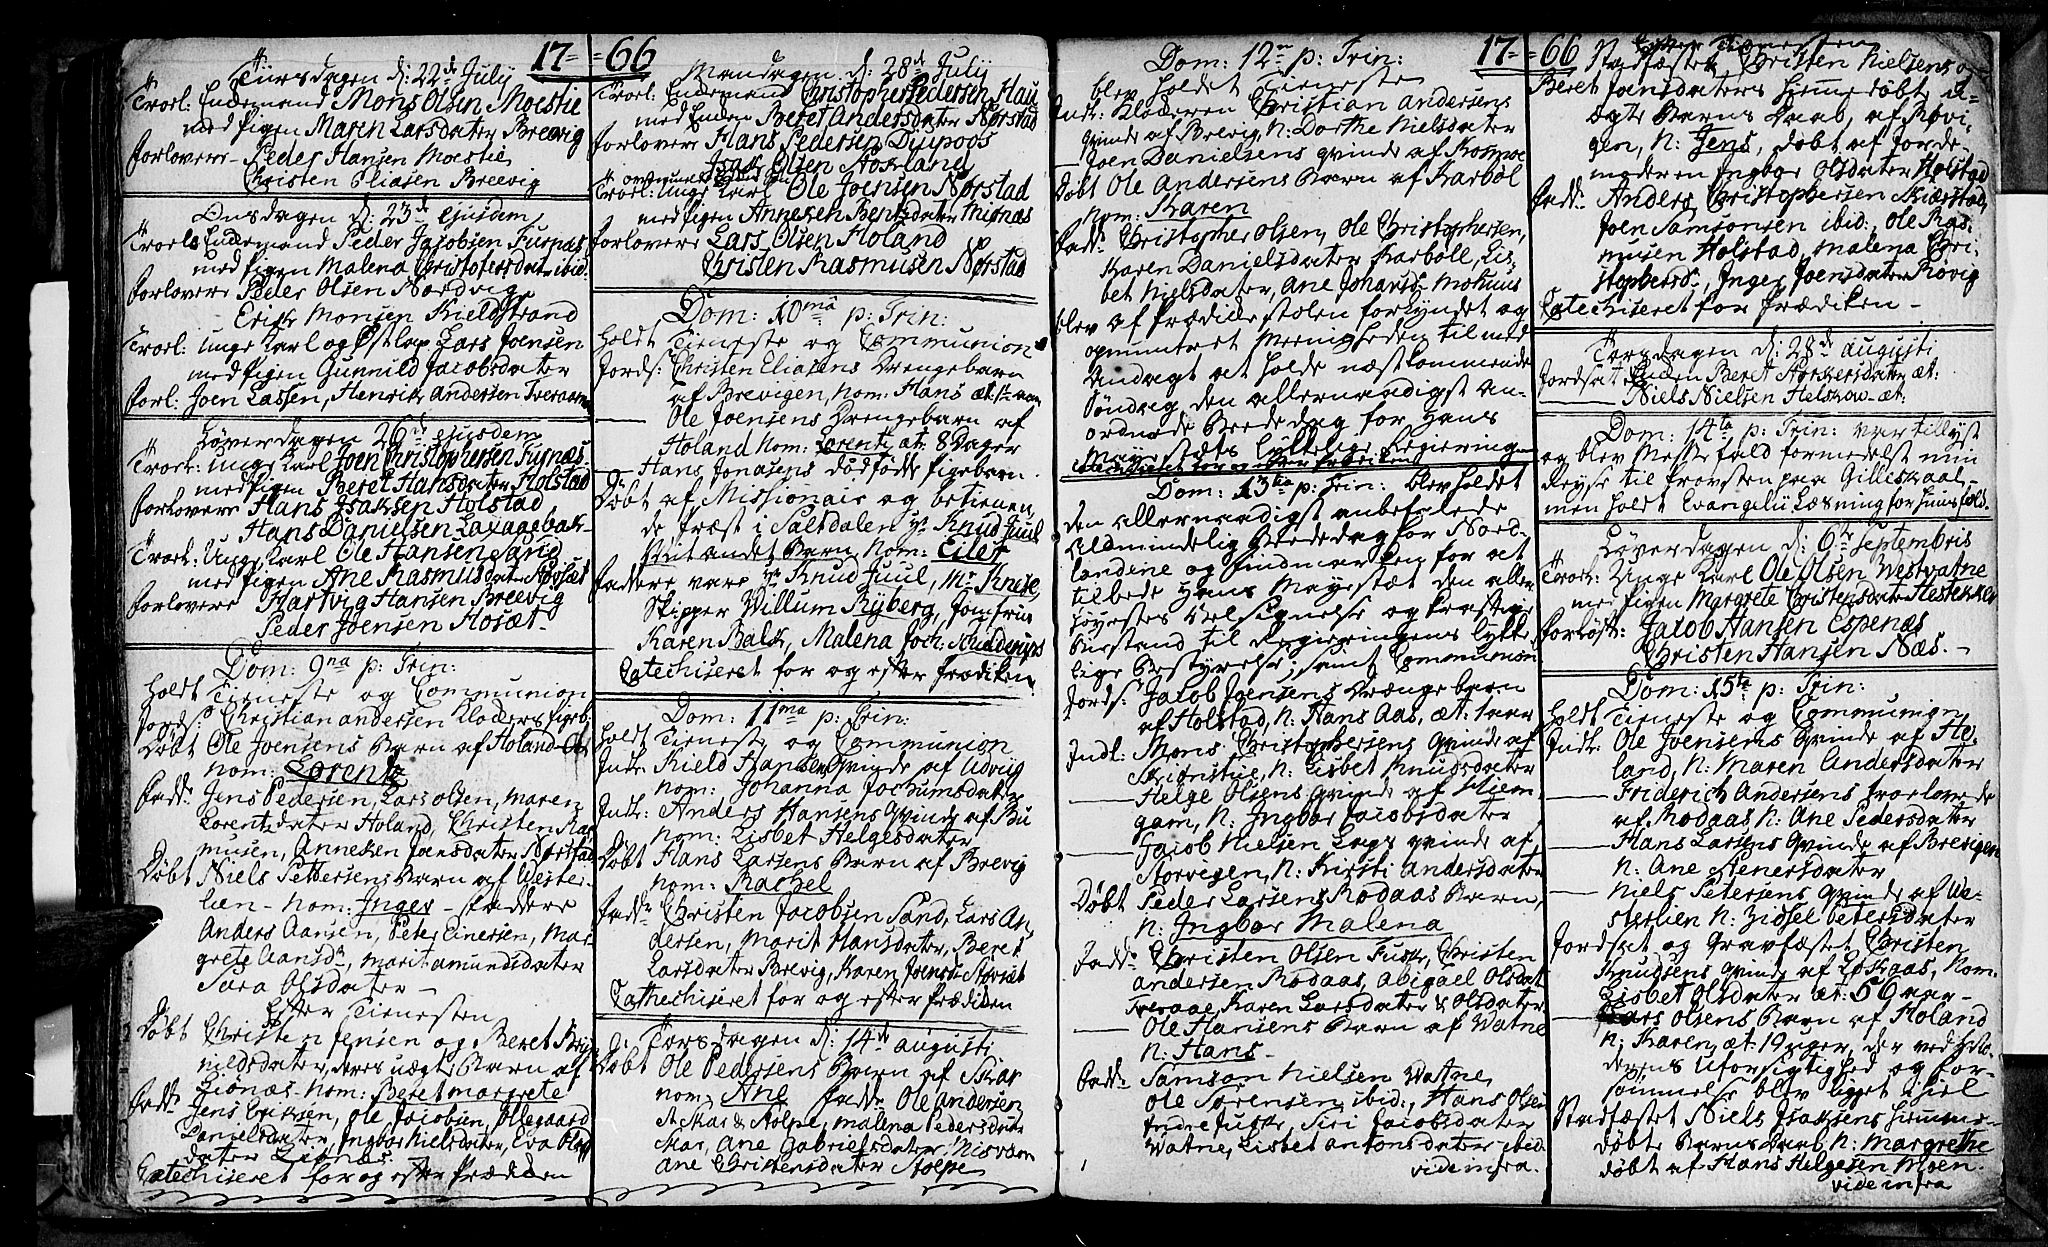 17 = = 66
Tiirsdagen d: 22de July
Troel: Enckemand Mons Olsen Moestie
med Pigen Maren Larsdatter Breevig
Forlovere Peder Hansen Moestie
Christen Eliasen Breevig
Onsdagen d: 23de ejusdem
Troel: Enckemand Peder Jacobsen Fursnæs
med Pigen Malena Christophersdatt: ibid:
Forlovere Peder Olsen Nordvig
Erich Monsen Kieldstrand
Troel: unge Karl og Lars Joensen
med Pigen Gunnild Jacobsdatter
Forl: Joen Lassen, Henrik Andersen Tveraaen
Løverdagen 26de ejusdem
Troel: Unge Karl Joen Christophersen Fursnæs
med Pigen Beret Hansdatter Holstad
Forlovere Hans Isaksen Holstad
Hans Danielsen
Troel: Unge Karl Ole Hansen Sand
med Pigen Ane Rasmusdatter
Forlovere Hartvig Hansen Breevig
Peder Joensen
Dom: 9na p: Trin:
holdt Tieneste og Communion
Jords: Christian Andersen Kloders Pigeb:
Døbt Ole Joensens Barn af Holand
nom: Lorentz
Fadd: Jens Pedersen, Lars Olsen, Maren
Lorentzdatter Holand, Christen Ras
musen, Anneken Joensdatter Norstad
Døbt Niels Pettersens Barn af Wester-
lien - nom: Inger - Faddere
Anders Aansen, Peter Einersen, Mar-
grete Aansdr, Marit Amundsdatter
Sara Olsdatter -
Efter Tienesten
Døbt Christen Jensen og Beret
nildsdatter, deres uægte Barn af
nom: Beret Margrete
Fadd: Jens Ole Jacobsen, Ollegaard
Danielsdatter, Ingbor Nielsdatter, Eva
datter
Catechiseret for og efter Prædiken
Mandagen d: 28de July
Troel: Enckemand Christopher Pedersen Hau
med Enken Beret Andersdatter Norstad
Forlovere Hans Pedersen
Isak Olsen
Troel: unge Karl Ole Joensen Norstad
med Pigen Anneken Bentsdatter
Forlovere Lars Olsen Holand
Christen Rasmusen Norstad
Dom: 10ma p: Trin:
holdt Tieneste og Communion
Jords: Christen Eliasens Drengebarn
af Brevigen, nom: Hans
Ole Joensens Drengebarn af
Holand nom: Lorentz æt: 8 Dager
Hans Jonasens dødfødde Pigebarn
Døbt af Missionair og betienen-
de Præst i Saltdalen Hr Knud Juul
Barn, nom: Eiler
Faddere vare Hr Knud Juul, Mr
Skipper Willum Ryberg, Jomfrue
Karen Balk, Malena Joch:
Catechiseret for og efter Prædiken
Dom: 11ma p: Trin:
holdt Tieneste og Communion
Indl: Kield Hansens Qvinde af Udvig
nom: Johanna Jochumsdatter
Indl: Anders Hansens Qvinde af Bu
nom: Lisbet Helgesdatter
Døbt Hans Larsens Barn af Brevig
nom: Rachel
Fadd: Christen Jacobsen Sand, Lars An-
dersen, Marit Hansdatter, Beret
Larsdatter Brevig, Karen
Catechiseret for og efter Prædiken
Torsdagen d: 14de Augusti
Døbt Ole Pedersens Barn af
nom: Ane Fadd: Ole Andersen
Malena Pedersdatter
Ane Gabrielsdatter
Ane Christensdatter Stolpe
17 = = 66
Dom: 12te p: Trin:
blev holdet Tieneste
Indl: Kloderen Christian Andersens
Qvinde af Brevig, N: Dorthe Nielsdatter
Joen Danielsens Qvinde af
Døbt Ole Andersens Barn af Karbøl
Nom: Karen
Fadd: Christopher Olsen, Ole Christophersen,
Karen Danielsdatter Karbøll, Lis-
bet Nielsdatter, Ane
blev af Prædikestolen forkyndet og
opmuntret Meenigheden til med
Andagt at holde næstkommende
Søndag den allernaadigst an-
ordnede Bededag for Hans
Mayestæts lykkelige Regiering
Catechiseret for og efter Prædiken
Dom: 13tia p: Trin: blev holdet
den allernaadigst anbefalede
almindelig Bededag for Nord-
landene og Findmarken for at
tilbede Hans Mayestæt den aller-
høyestes Velsignelse og kraftige
Biestand til Regieringens lykke-
lige Bestyrelse; samt Communion
Jords: Jacob Joensens Drengebarn
af Holstad, N: Hans Aas, æt: 1 aar
Indl: Mons Christophersens Qvinde af
N: Lisbet Knudsdatter
Helge Olsens Qvinde af
gam, N: Ingbor Jacobsdatter
Jacob Nielsen Qvinde af
Storvigen, N: Kirsti Andersdatter
Døbt Peder Larsens Rodaas Barn,
N: Ingbor Malena
Fadd: Christen Olsen Fusk, Christen
Andersen Rodaas, Abigael Olsdatt
Tveraae, Karen Larsdatter & Olsdatter
Ole Hansens Barn af Watne
N: Hans -
Fadd: Samson Nielsen Watne,
Ole Sørensen ibid:, Hans Olsen
Indre Fusk, Siri Jacobsdatter
Watne, Lisbet Antonsdatter ibid:
vide infra.
Efter Tienesten
Stadfæstet Christen Nielsens og
Beret Jensdatters hiemmedøbte u-
ægte Barns Daab, af Røvi-
gen, N: Jens, døbt af Jorde-
moderen Ingbor Olsdatter Holstad
Fadd: Anders Christophersen
Joen Samsonsen ibid:, Ole Ras-
musen Holstad, Malena Chri-
stophersd., Inger Joensdatter Røvig
Catechiseret for Prædiken -
Torsdagen d: 28de Augusti
Jordsat Enken Beret æt:
Niels Nielsen æt:
Dom: 14ta p: Trin: var tillyst
og blev Messefald formedelst min
Reyse til Provsten paa Gilleskaal,
men holdt Evangelii Læsning for
Løverdagen d: 6te Septembris
Troel: Unge Karl Ole Olsen Westvatne
med Pigen Margrete Christensdatter
Forløft: Jacob Hansen Espenæs
Christen Hansen Næs. -
Dom: 15ta p: Trin:
holdt Tieneste og Communion
Indl: Ole Joensens Qvinde af Ho-
land, N: Maren Andersdatter
Friderich Andersens trolovede
af Rodaas N: Ane Pedersdatter
Hans Larsens Qvinde af Brevigen
N: Ane
Niels Petersens Qvinde af We-
sterlien N: Zidsel Petersdatter
Jordsat og Gravfæstet Christen
Knudsens Qvinde af Nom:
Lisbet Olsdatter æt: 56 aar -
Lars Olsens Barn af Holand
N: Karen, æt: 19 uger, der ved Mo-
derens uforsigtighed og for-
sømmelse blev ligget ihiel
Stadfæstet Niels Isaksens hiemme-
døbte Barns Daab N: Margrethe
døbt af Hans Helgesen Moen.
vide infra